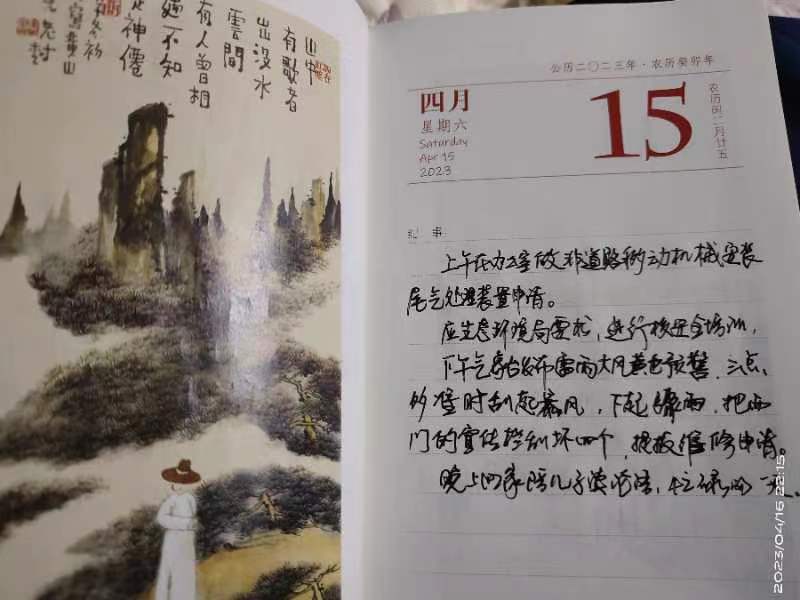 山中
有歌者
出没水
雲間
有人曾相
遇不知
是神僊
公历二〇二三年·农历癸卯年
四月
星期六
Saturday
Apr 15
2023
15
农历闰二月廿五
纪 事
上午在办公室做非道路移动机械安装
尾气处理装置申请。
应生态环境局要求，进行核
下午气象台发布雷雨大风黄色预警，三点
时刮起暴风，下起骤雨，把西
门的宣传栏刮坏四个，提报维修申请。
晚上回家陪儿子读，忙碌的一天。
2023/04/16 22:15